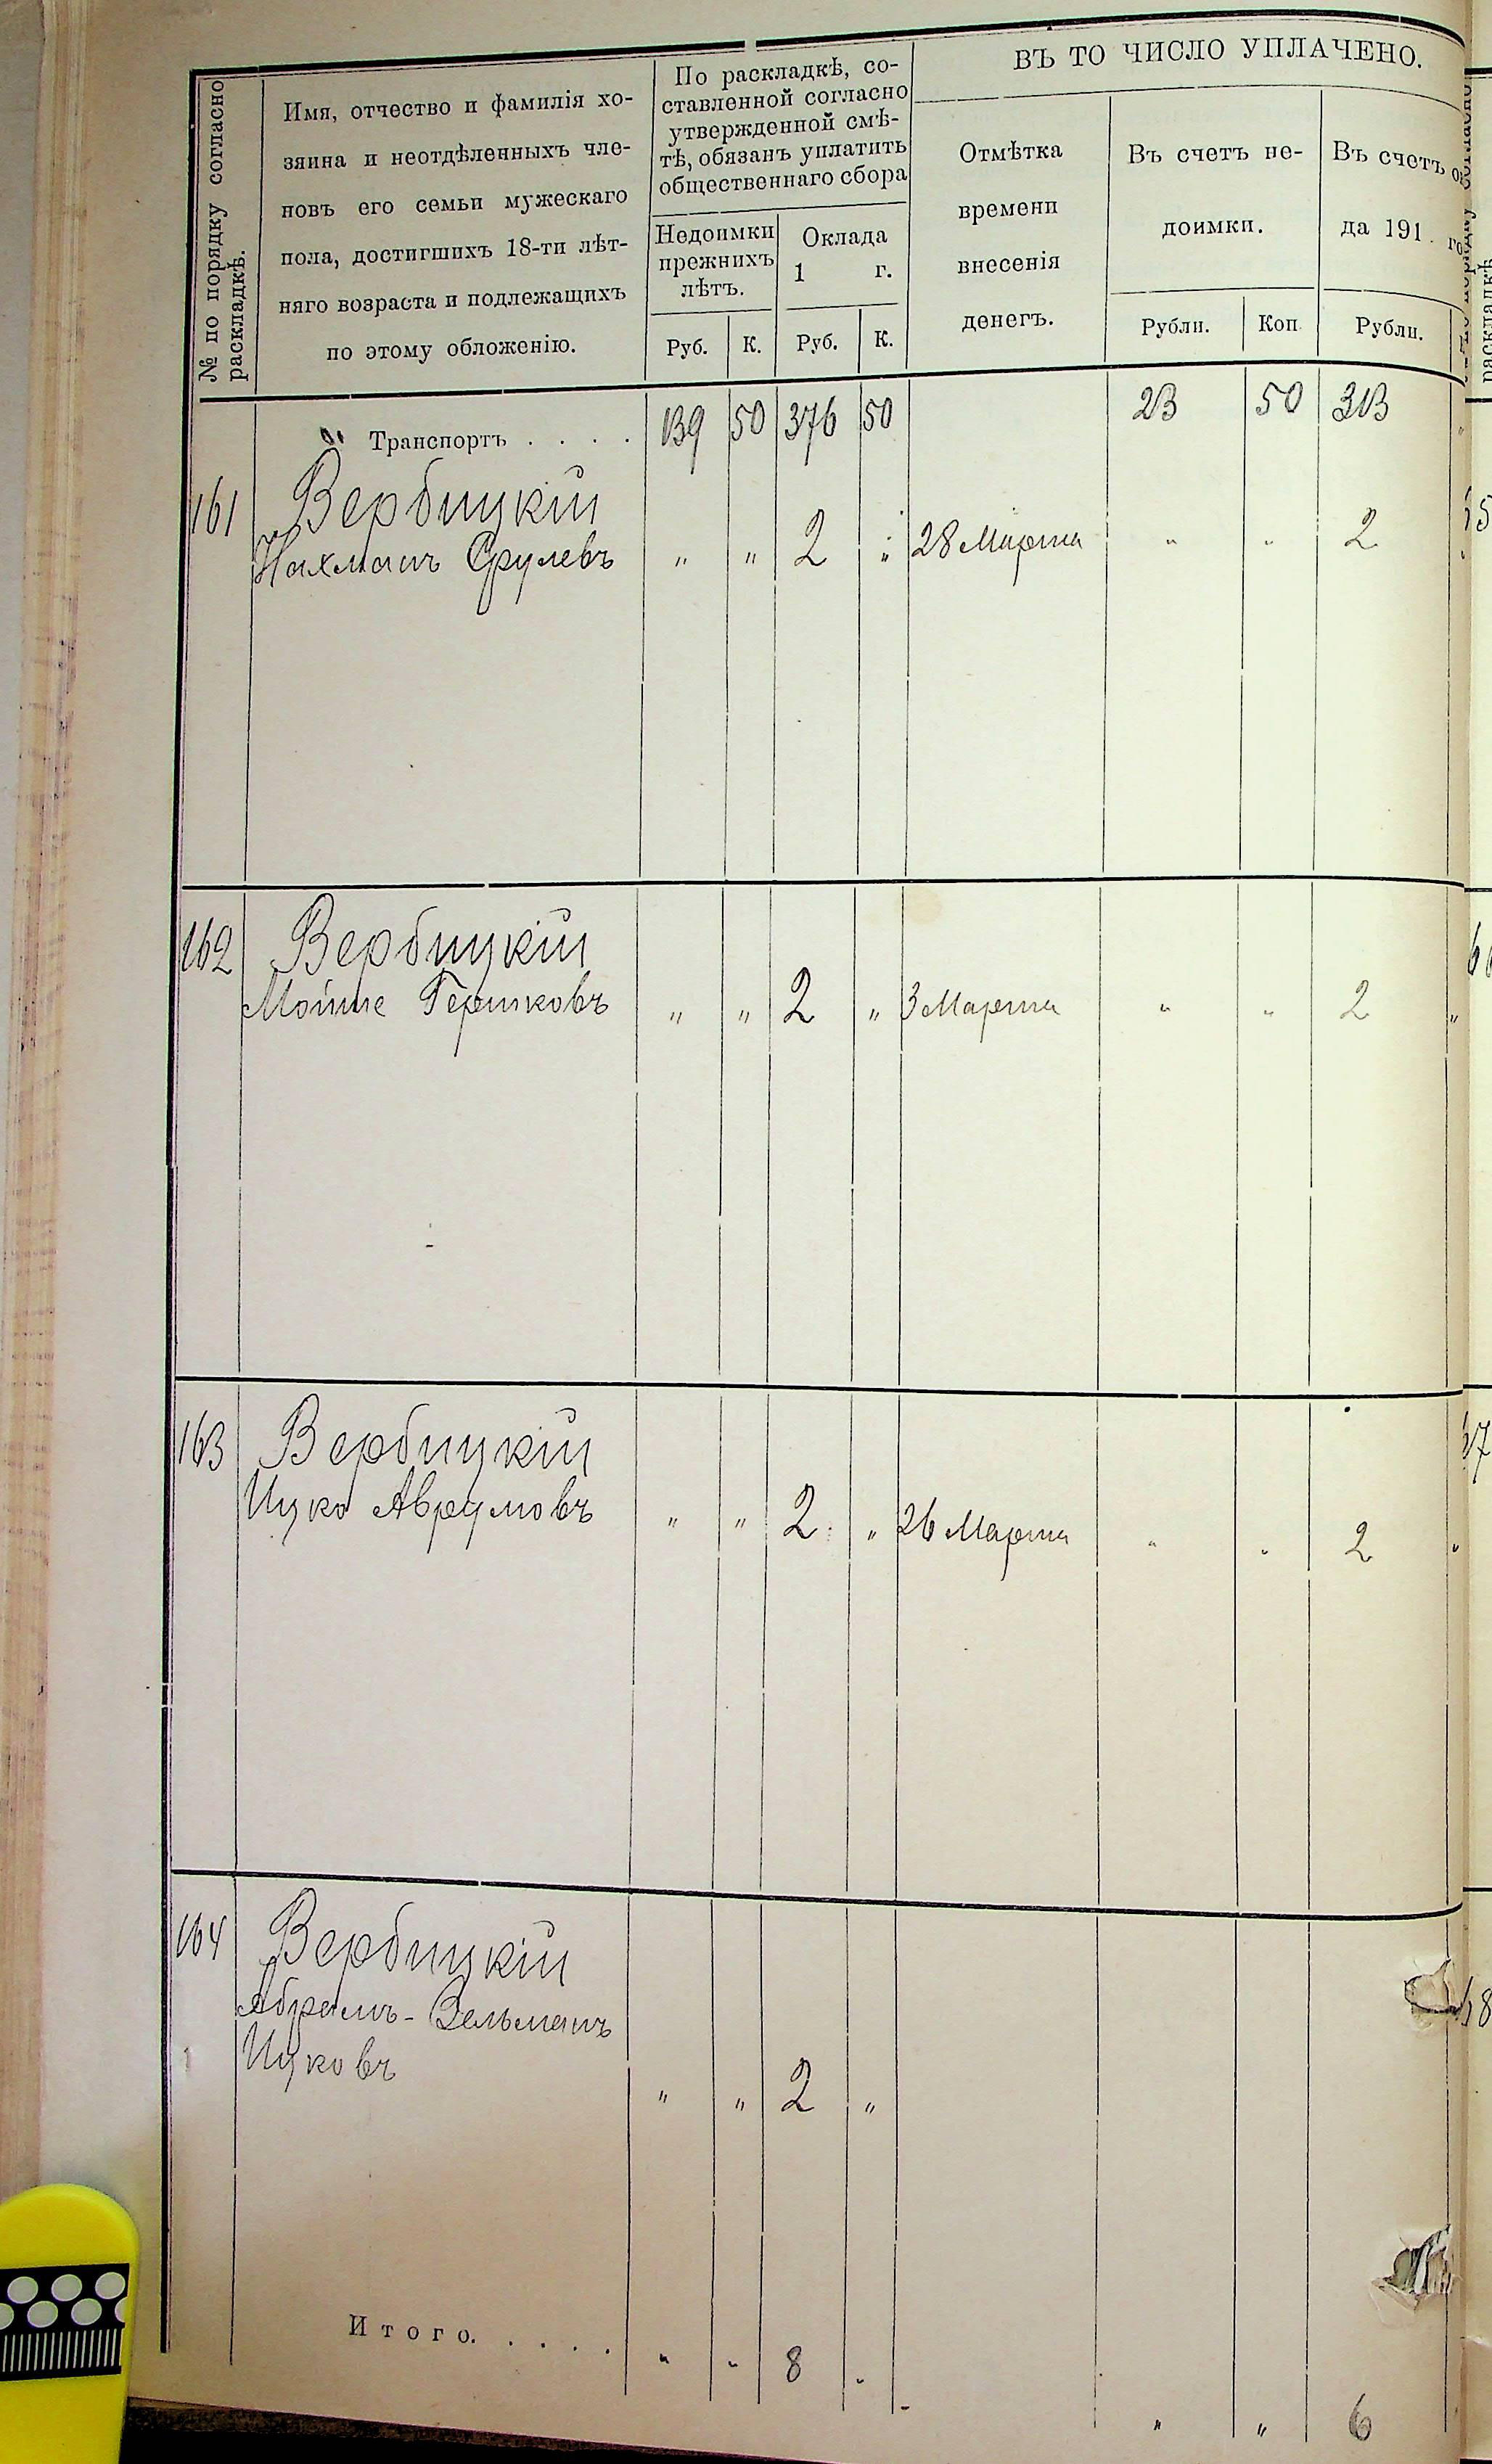 № по порядку согласно
раскладкѣ.
Имя, отчество и фамилія хо-
зяина и неотдѣленныхъ чле-
новъ его семьи мужескаго
пола, достигшихъ 18-ти лѣт-
няго возраста и подлежащихъ
по этому обложенію.
По раскладкѣ, со-
ставленной согласно
утвержденной смѣ-
тѣ, обязанъ уплатить
общественнаго сбора
Недоимки
прежнихъ
лѣтъ.
Оклада
1 г.
Руб. К. Руб. К.
ВЪ ТО ЧИСЛО УПЛАЧЕНО.
Отмѣтка
времени
внесенія
денегъ.
Въ счетъ не-
доимки.
Рубли. Коп.
Въ счетъ
да 191 . го
Рубли.
Транспортъ . . . . 139 50 376 50 23 50 313
161 Вербицкій
Нахманъ Срулевъ " " 2 " 28 Марта " " 2
162 Вербицкій
Мойше Гершковъ " " 2 " 3 Марта " " 2 "
163 Вербицкій
Ицко Аврумовъ " " 2 " 26 Марта " " 2 "
164 Вербицкій
Абрамъ-Зельманъ
Ицковъ
" " 2 "
Итого. . . . . " " 8 "
" " 6